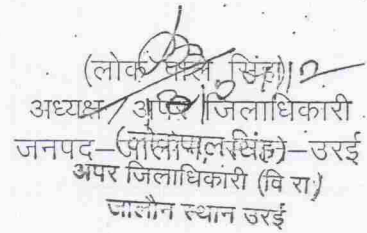 (लोक पाल सिंह)
अध्यक्ष / अपर जिलाधिकारी
जनपद-जालौन-उरई
(लोकपाल सिंह)
अपर जिलाधिकारी (वि रा)
जालौन स्थान उरई